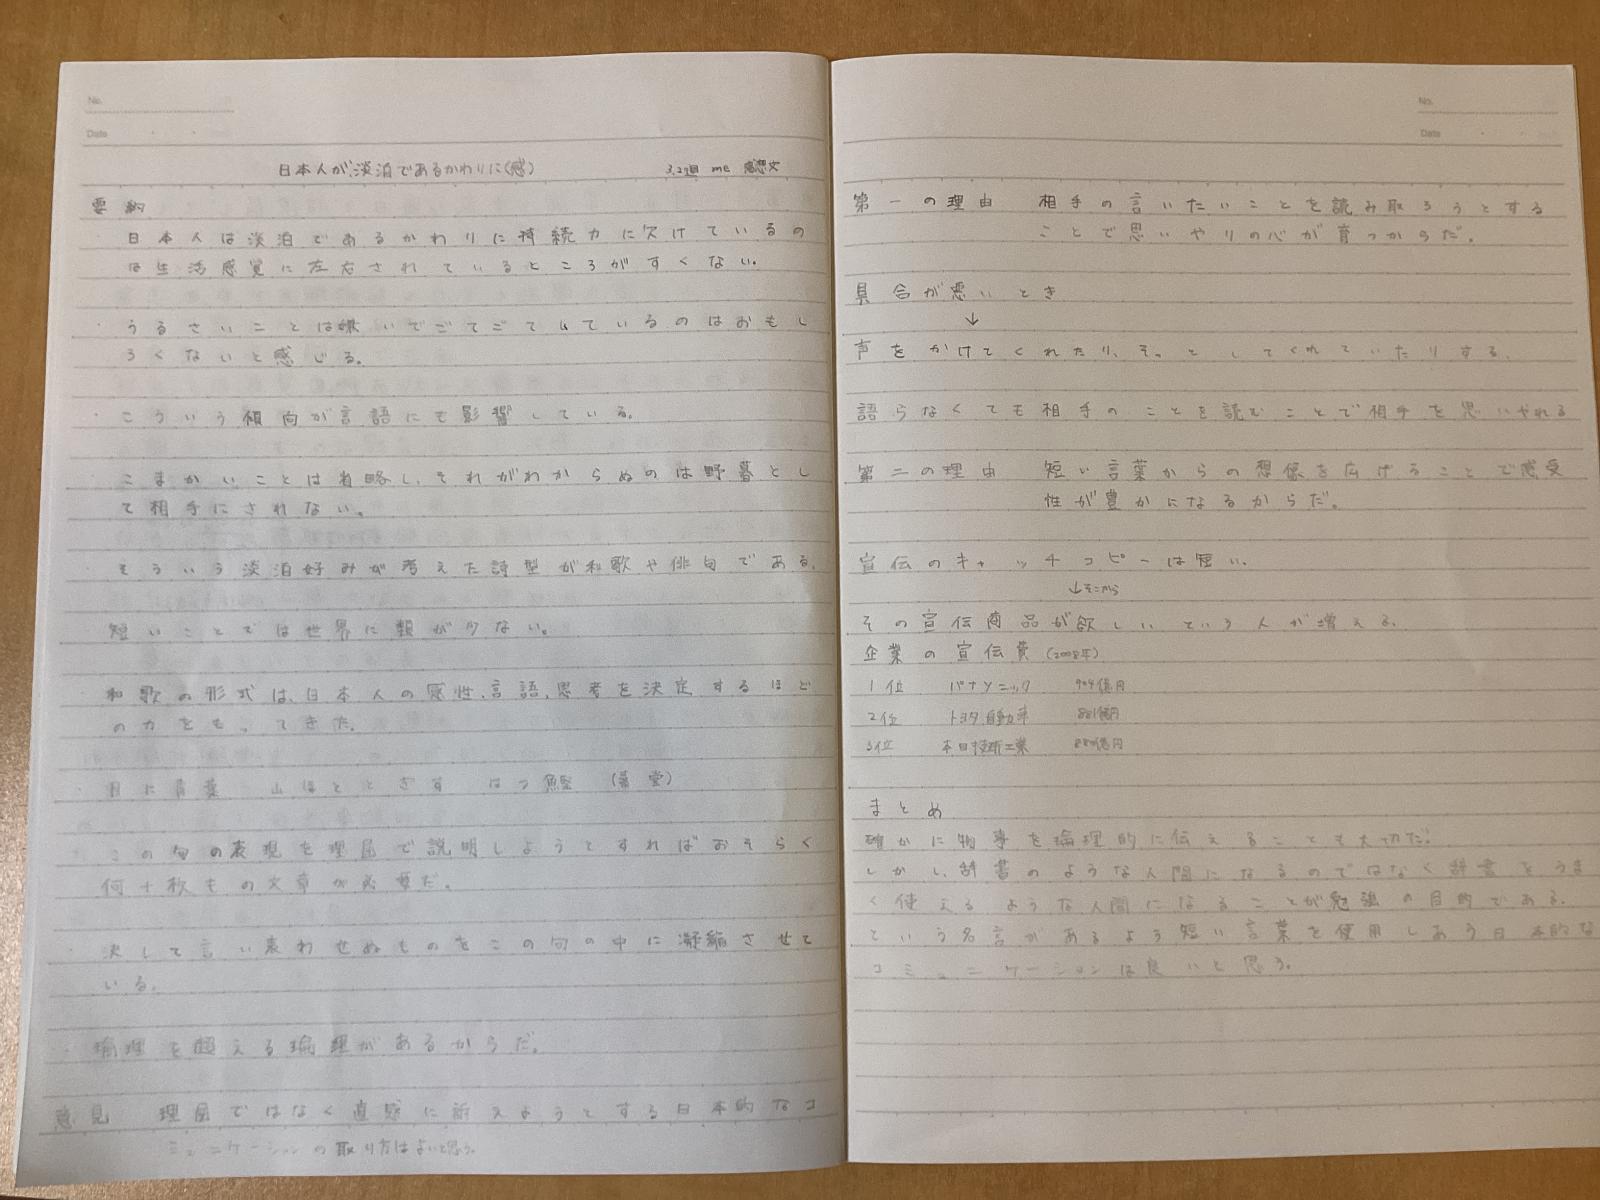 No.
Date
日本人が淡泊であるかわりに(感) 3.2週 me 感想文
要約
・日本人は淡泊であるかわりに持続力に欠けているの
は生活感覚に左右されているところがすくない。
・うるさいことは嫌いでごてごてしているのはおもし
ろくないと感じる。
・こういう傾向が言語にも影響している。
・こまかいことは省略し、それがわからぬのは野暮とし
て相手にされない。
・そういう淡泊好みが考えた詩型が和歌や俳句である。
短いことでは世界に類が少ない。
和歌の形式は、日本人の感性、言語、思考を決定するほど
の力をもってきた。
・目に青葉 山ほととぎす はつ鰹 (素堂)
・この句の表現を理屈で説明しようとすればおそらく
何十枚もの文章が必要だ。
・決して言い表わせぬものをこの句の中に凝縮させて
いる。
・論理を超える論理があるからだ。
意見 理屈ではなく直感に訴えようとする日本的なコ
ミュニケーションの取り方はよいと思う。
No.
Date
第一の理由 相手の言いたいことを読み取ろうとする
ことで思いやりの心が育つからだ。
具合が悪いとき
↓
声をかけてくれたり、そっとしてくれていたりする。
語らなくても相手のことを読むことで相手を思いやれる
第二の理由 短い言葉からの想像を広げることで感受
性が豊かになるからだ。
宣伝のキャッチコピーは短い。
↓そこから
その宣伝商品が欲しいという人が増える。
企業の宣伝費(2008年)
1位 パナソニック 904億円
2位 トヨタ自動車 881億円
3位 本田技研工業 億円
まとめ
確かに物事を論理的に伝えることも大切だ。
しかし、辞書のような人間になるのではなく辞書をうま
く使えるような人間になることが勉強の目的である。
という名言があるよう短い言葉を使用しあう日本的な
コミュニケーションは良いと思う。